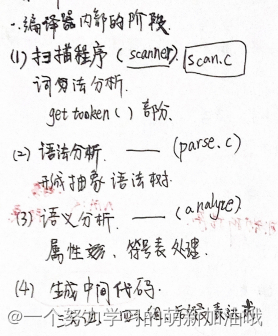 一.编译器内部的阶段
(1) 扫描程序 (scanner). scan.c
词法分析.
get tooken () 部分.
(2) 语法分析. —— (parse.c)
形成抽象语法树.
(3) 语义分析. —— (analyze)
属性 符号表处理.
(4) 生成中间代码.
@一个努力学习的萌新加油哦